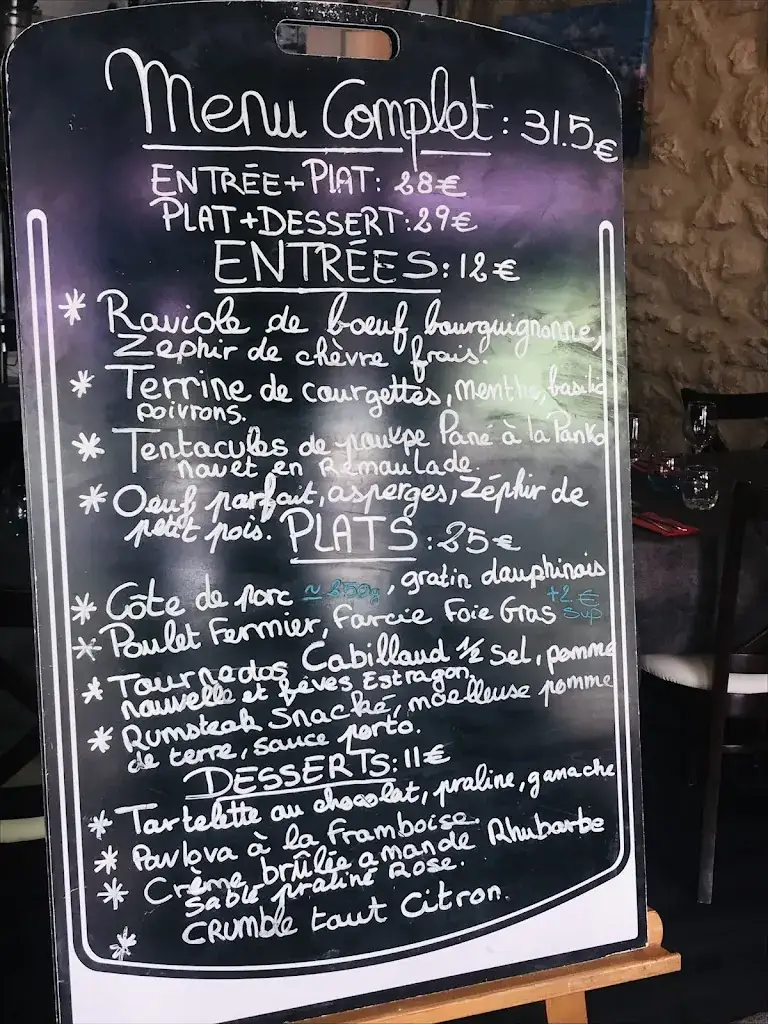 Menu Complet : 31.5€
ENTRÉE+PLAT: 28€
PLAT+DESSERT: 29€
ENTRÉES: 12€
* Raviole de boeuf bourguignonne,
Zéphir de chèvre frais.
* Terrine de courgettes, menthe, basilic
poivrons.
* Tentacules de poulpe Pané à la Panko
navet en Rémoulade.
* Oeuf parfait, asperges, Zéphir de
petit pois.
PLATS: 25€
* Côte de porc ~ 250g, gratin dauphinois
* Poulet Fermier, Farcie Foie Gras +2€ sup
* Tournados Cabillaud ½ sel, pomme
nouvelle et fèves Estragon,
* Rumsteak Snacké, moelleuse pomme
de terre, sauce porto.
DESSERTS: 11€
* Tartelette au chocolat, praline, ganache
* Pavlova à la Framboise.
* Crème brûlée amande Rhubarbe
Sablé praline Rose.
* CRUMble tout Citron.